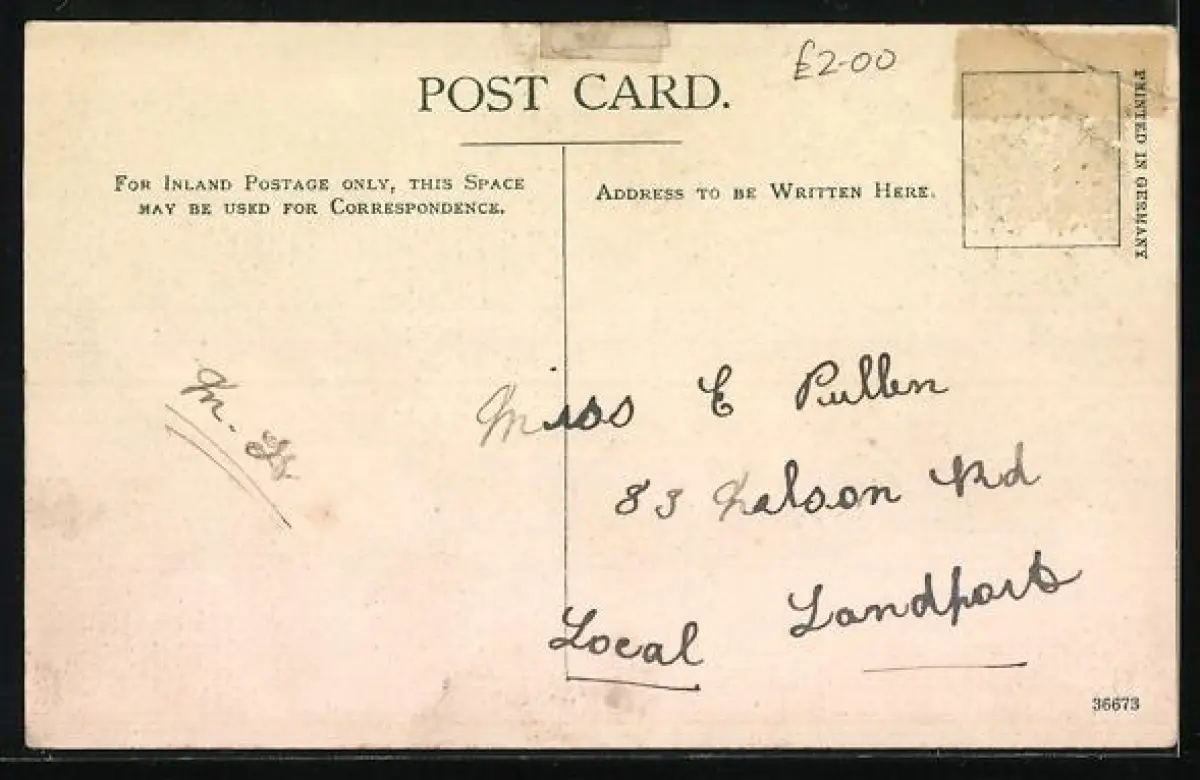 £2-00
POST CARD.
PRINTED IN GERMANY
FOR INLAND POSTAGE ONLY, THIS SPACE
MAY BE USED FOR CORRESPONDENCE.
ADDRESS TO BE WRITTEN HERE.
Miss E Pullen
83 Rd
Local Landport
36673